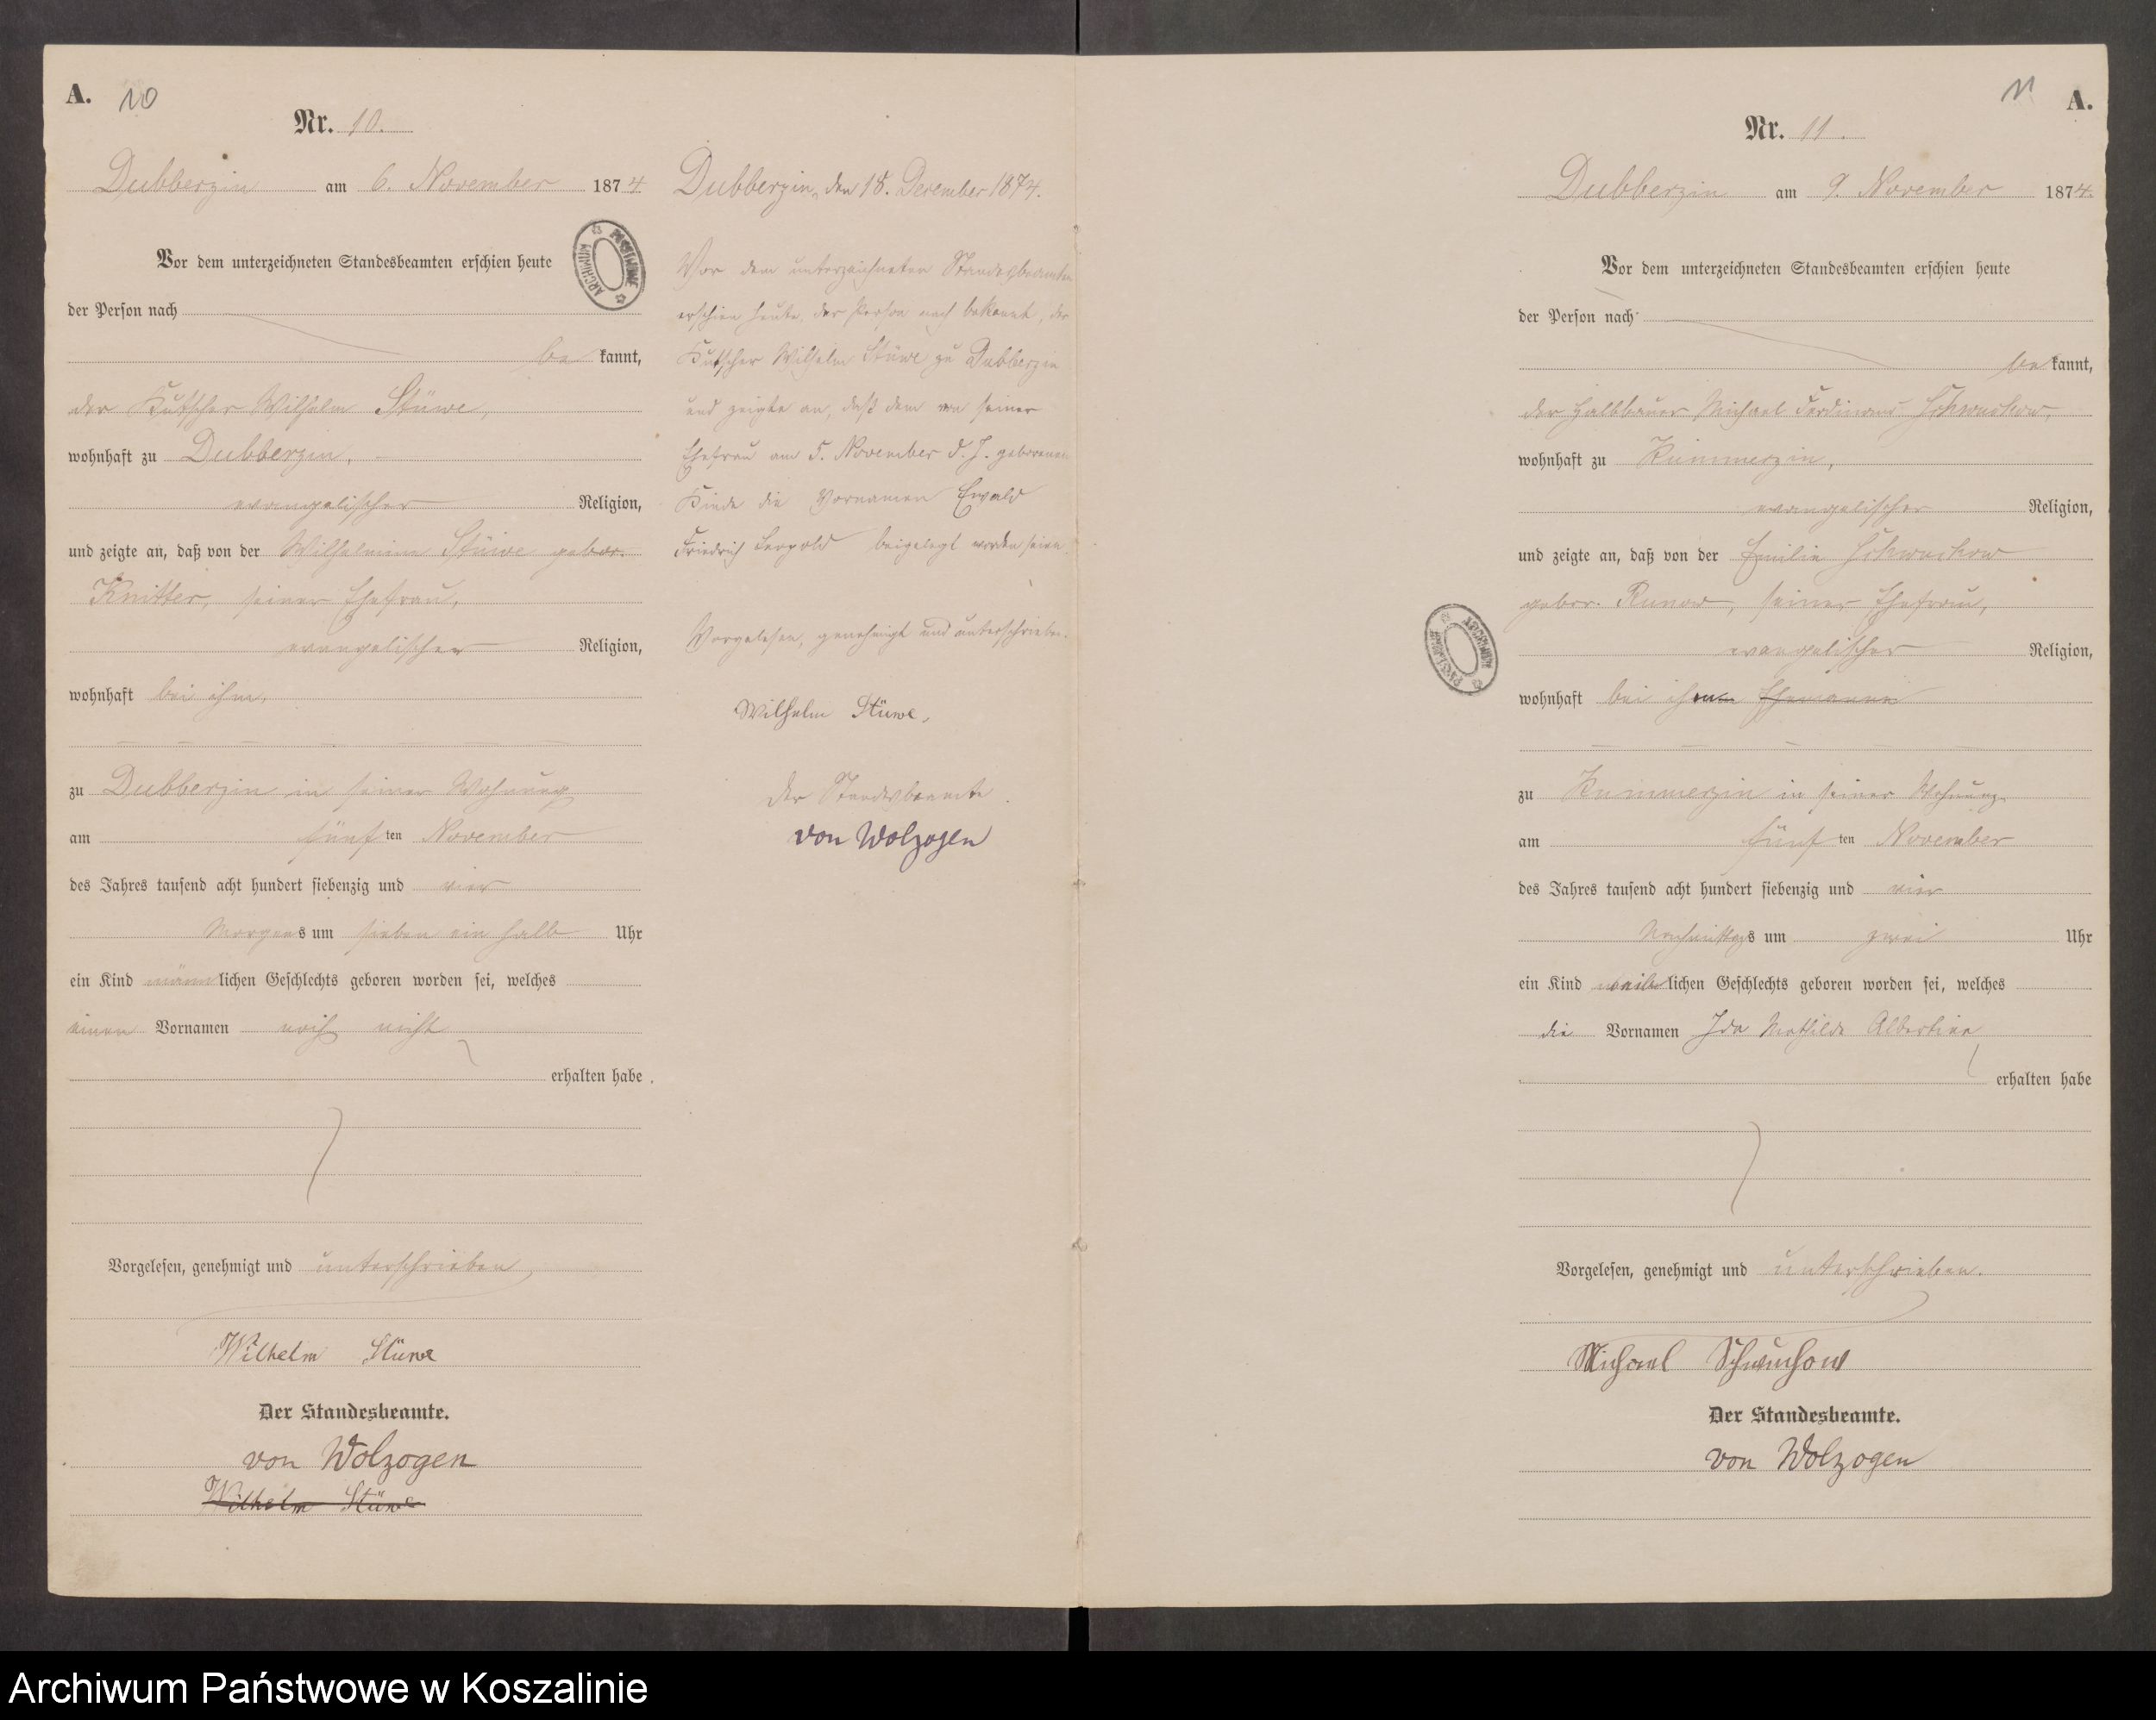 A. 10
Nr. 10.
Dubberzin am 6. November 1874
Vor dem unterzeichneten Standesbeamten erschien heute
der Person nach
bekannt,
der Kutscher Wilhelm Stüwe,
wohnhaft zu Dubberzin,
evangelischer Religion,
und zeigte an, daß von der Wilhelmine Stüwe gebor.
Knitter, seiner Ehefrau,
evangelischer Religion,
wohnhaft bei ihm,
zu Dubberzin in seiner Wohnung
am fünften November
des Jahres tausend acht hundert siebenzig und vier
Morgens um sieben ein halb Uhr
ein Kind männlichen Geschlechts geboren worden sei, welches
einen Vornamen noch nicht
erhalten habe.
Vorgelesen, genehmigt und unterschrieben,
Wilhelm Stüwe
Der Standesbeamte.
von Wolzogen
Wilhelm Stüwe
Dubberzin, den 18. December 1874.
Vor dem unterzeichneten Standesbeamten
erschien heute, der Person nach bekannt, der
Kutscher Wilhelm Stüwe zu Dubberzin
und zeigte an, daß dem von seiner
Ehefrau am 5. November d. J. geborenen
Kinde die Vornamen Ewald
Friedrich Leopold beigelegt worden seien.
Vorgelesen, genehmigt und unterschrieben.
Wilhelm Stüwe,
Der Standesbeamte.
von Wolzogen
11 A.
Nr. 11.
Dubberzin am 9. November 1874.
Vor dem unterzeichneten Standesbeamten erschien heute
der Person nach
bekannt,
der Halbbauer Michael Ferdinand Schwuchow,
wohnhaft zu Kummerzin,
evangelischer Religion,
und zeigte an, daß von der Emilie Schwuchow
gebor. Runow, seiner Ehefrau,
evangelischer Religion,
wohnhaft bei ihrem Ehemanne
zu Kummerzin in seiner Wohnung
am fünften November
des Jahres tausend acht hundert siebenzig und vier
Nachmittags um zwei Uhr
ein Kind weiblichen Geschlechts geboren worden sei, welches
die Vornamen Ida Mathilde Albertine
erhalten habe
Vorgelesen, genehmigt und unterschrieben.
Michael Schwuchow
Der Standesbeamte.
von Wolzogen
ARCHIWUM PAŃSTWOWE
ARCHIWUM PAŃSTWOWE
Archiwum Państwowe w Koszalinie